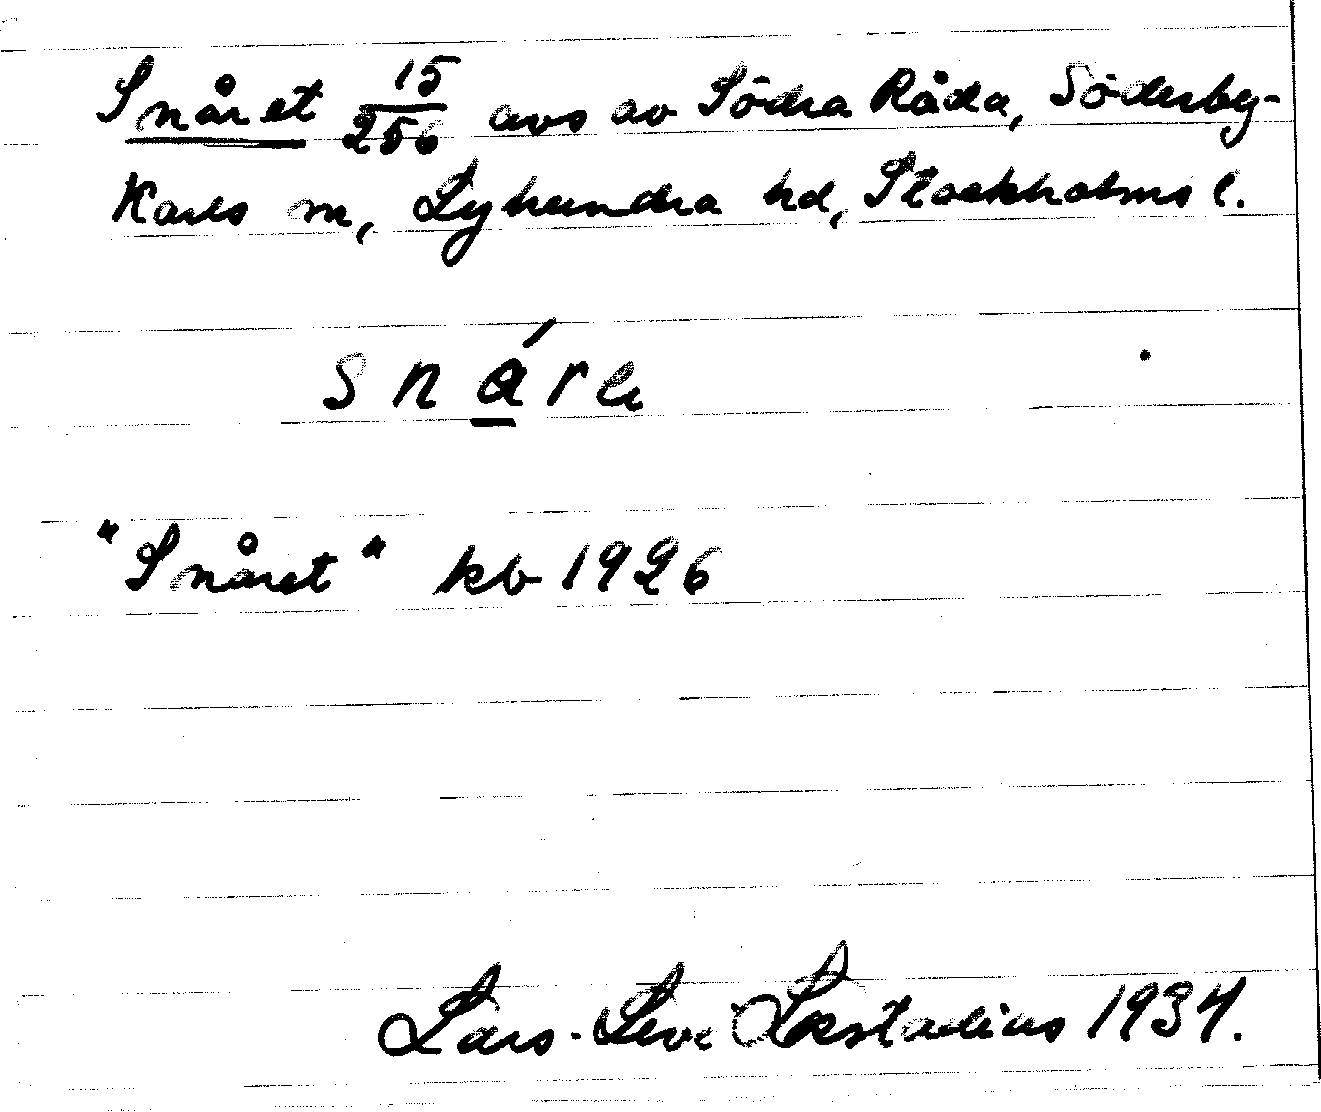 Snåret 15/256 avs av Södra Råda, Söderby-
Karls sn, Lyhundra hd, Stockholms l.
snáre
"Snåret" kb 1926
Lars-Levi Læstadius 1934.